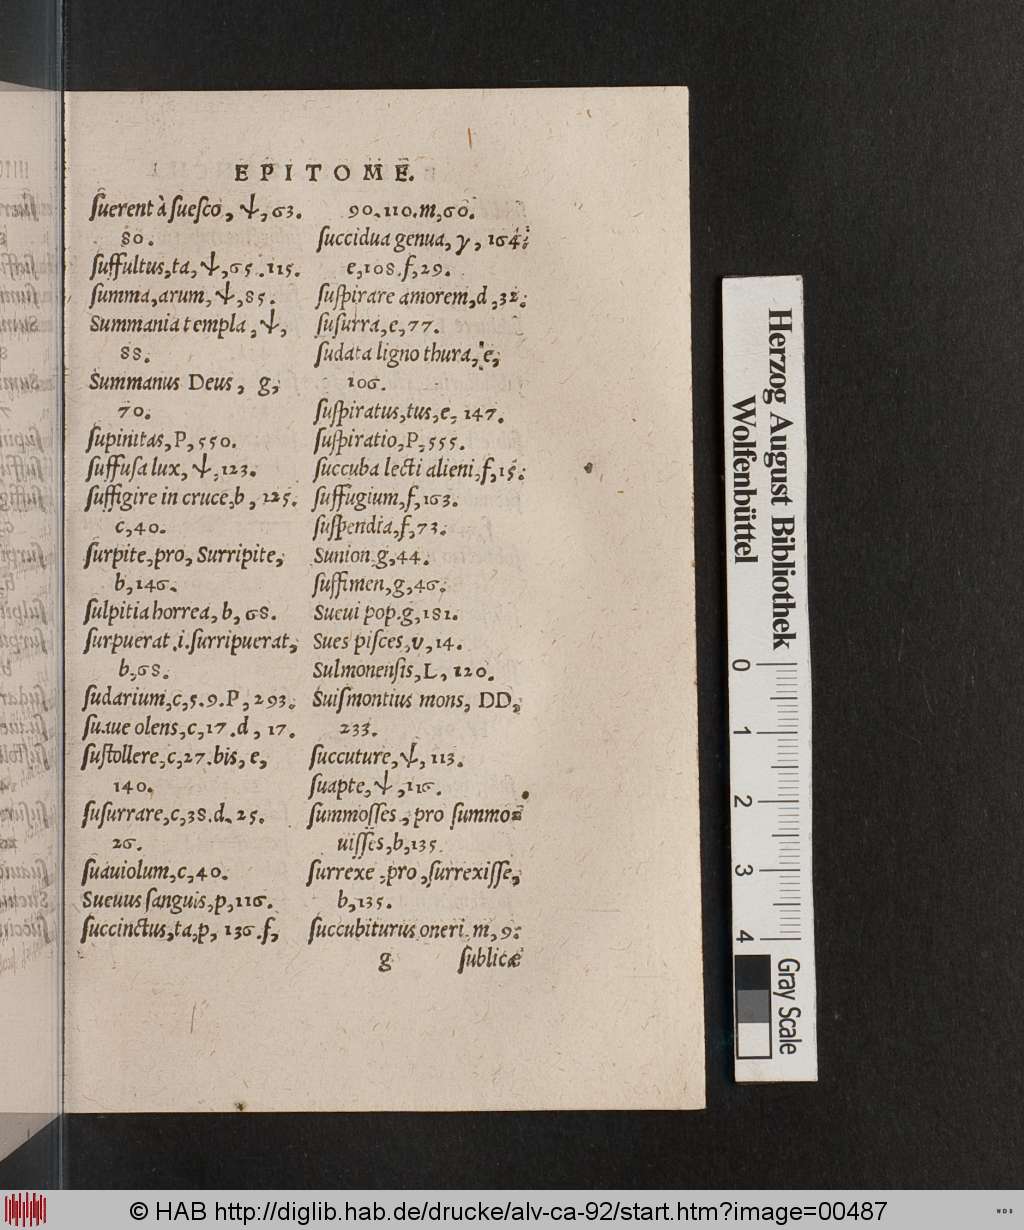 EPITOME.
ſuerent à ſueſco, ψ, 63.
80.
ſuffultus,ta, ψ, 65.115.
ſumma,arum, ψ, 85.
Summania templa, ψ,
88.
Summanus Deus, g,
70.
ſupinitas, P, 550.
ſuffuſa lux, ψ, 123.
ſuffigire in cruce,b, 125.
c,40.
ſurpite,pro, Surripite,
b,146.
ſulpitia horrea, b, 68.
ſurpuerat.i.ſurripuerat,
b,68.
ſudarium,c,5.9.P, 293.
ſuaue olens,c,17.d, 17.
ſuſtollere,c,27.bis, e,
140.
ſuſurrare,c,38.d. 25.
26.
ſuauiolum,c,40.
Sueuus ſanguis,p,116.
ſuccinctus,ta,p, 136.f,
90.110.m,60.
ſuccidua genua, γ, 164.
e,108.f,29.
ſuſpirare amorem,d,32.
ſuſurra,e,77.
ſudata ligno thura, e,
106.
ſuſpiratus,tus,e, 147.
ſuſpiratio,P,555.
ſuccuba lecti alieni,f,15.
ſuffugium,f,163.
ſuſpendia,f,73.
Sunion.g,44.
ſuffimen,g,46.
Sueui pop.g,181.
Sues piſces,υ,14.
Sulmonenſis,L, 120.
Suiſmontius mons, DD,
233.
ſuccuture, ψ, 113.
ſuapte, ψ, 116.
ſummoſſes, pro ſummo=
uiſſes,b,135.
ſurrexe,pro,ſurrexiſſe,
b,135.
ſuccubiturus oneri.m,9.
g ſublicæ
Herzog August Bibliothek
Wolfenbüttel
0 1 2 3 4
Gray Scale
© HAB http://diglib.hab.de/drucke/alv-ca-92/start.htm?image=00487
WDB